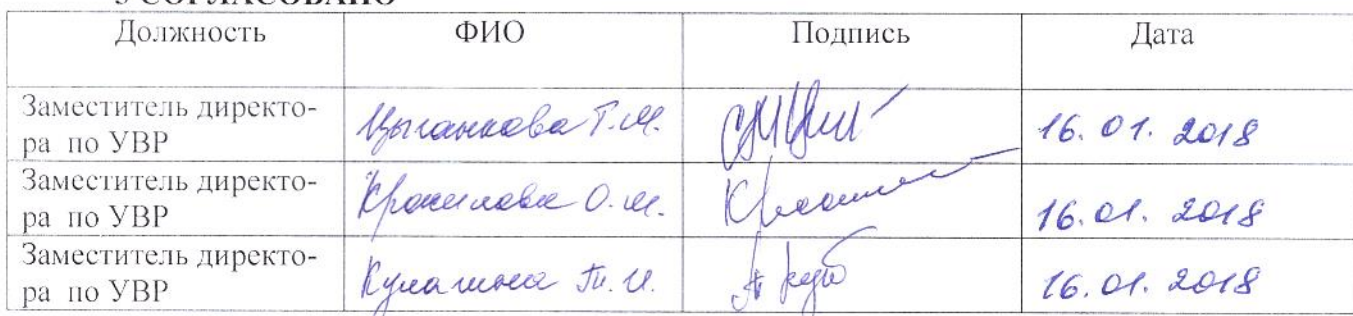 5 СОГЛАСОВАНО
Должность ФИО Подпись Дата
Заместитель директо-
ра по УВР
Цыганкова Т.М. 16.01.2018
Заместитель директо-
ра по УВР
О.М. 16.01.2018
Заместитель директо-
ра по УВР
Т.И. 16.01.2018